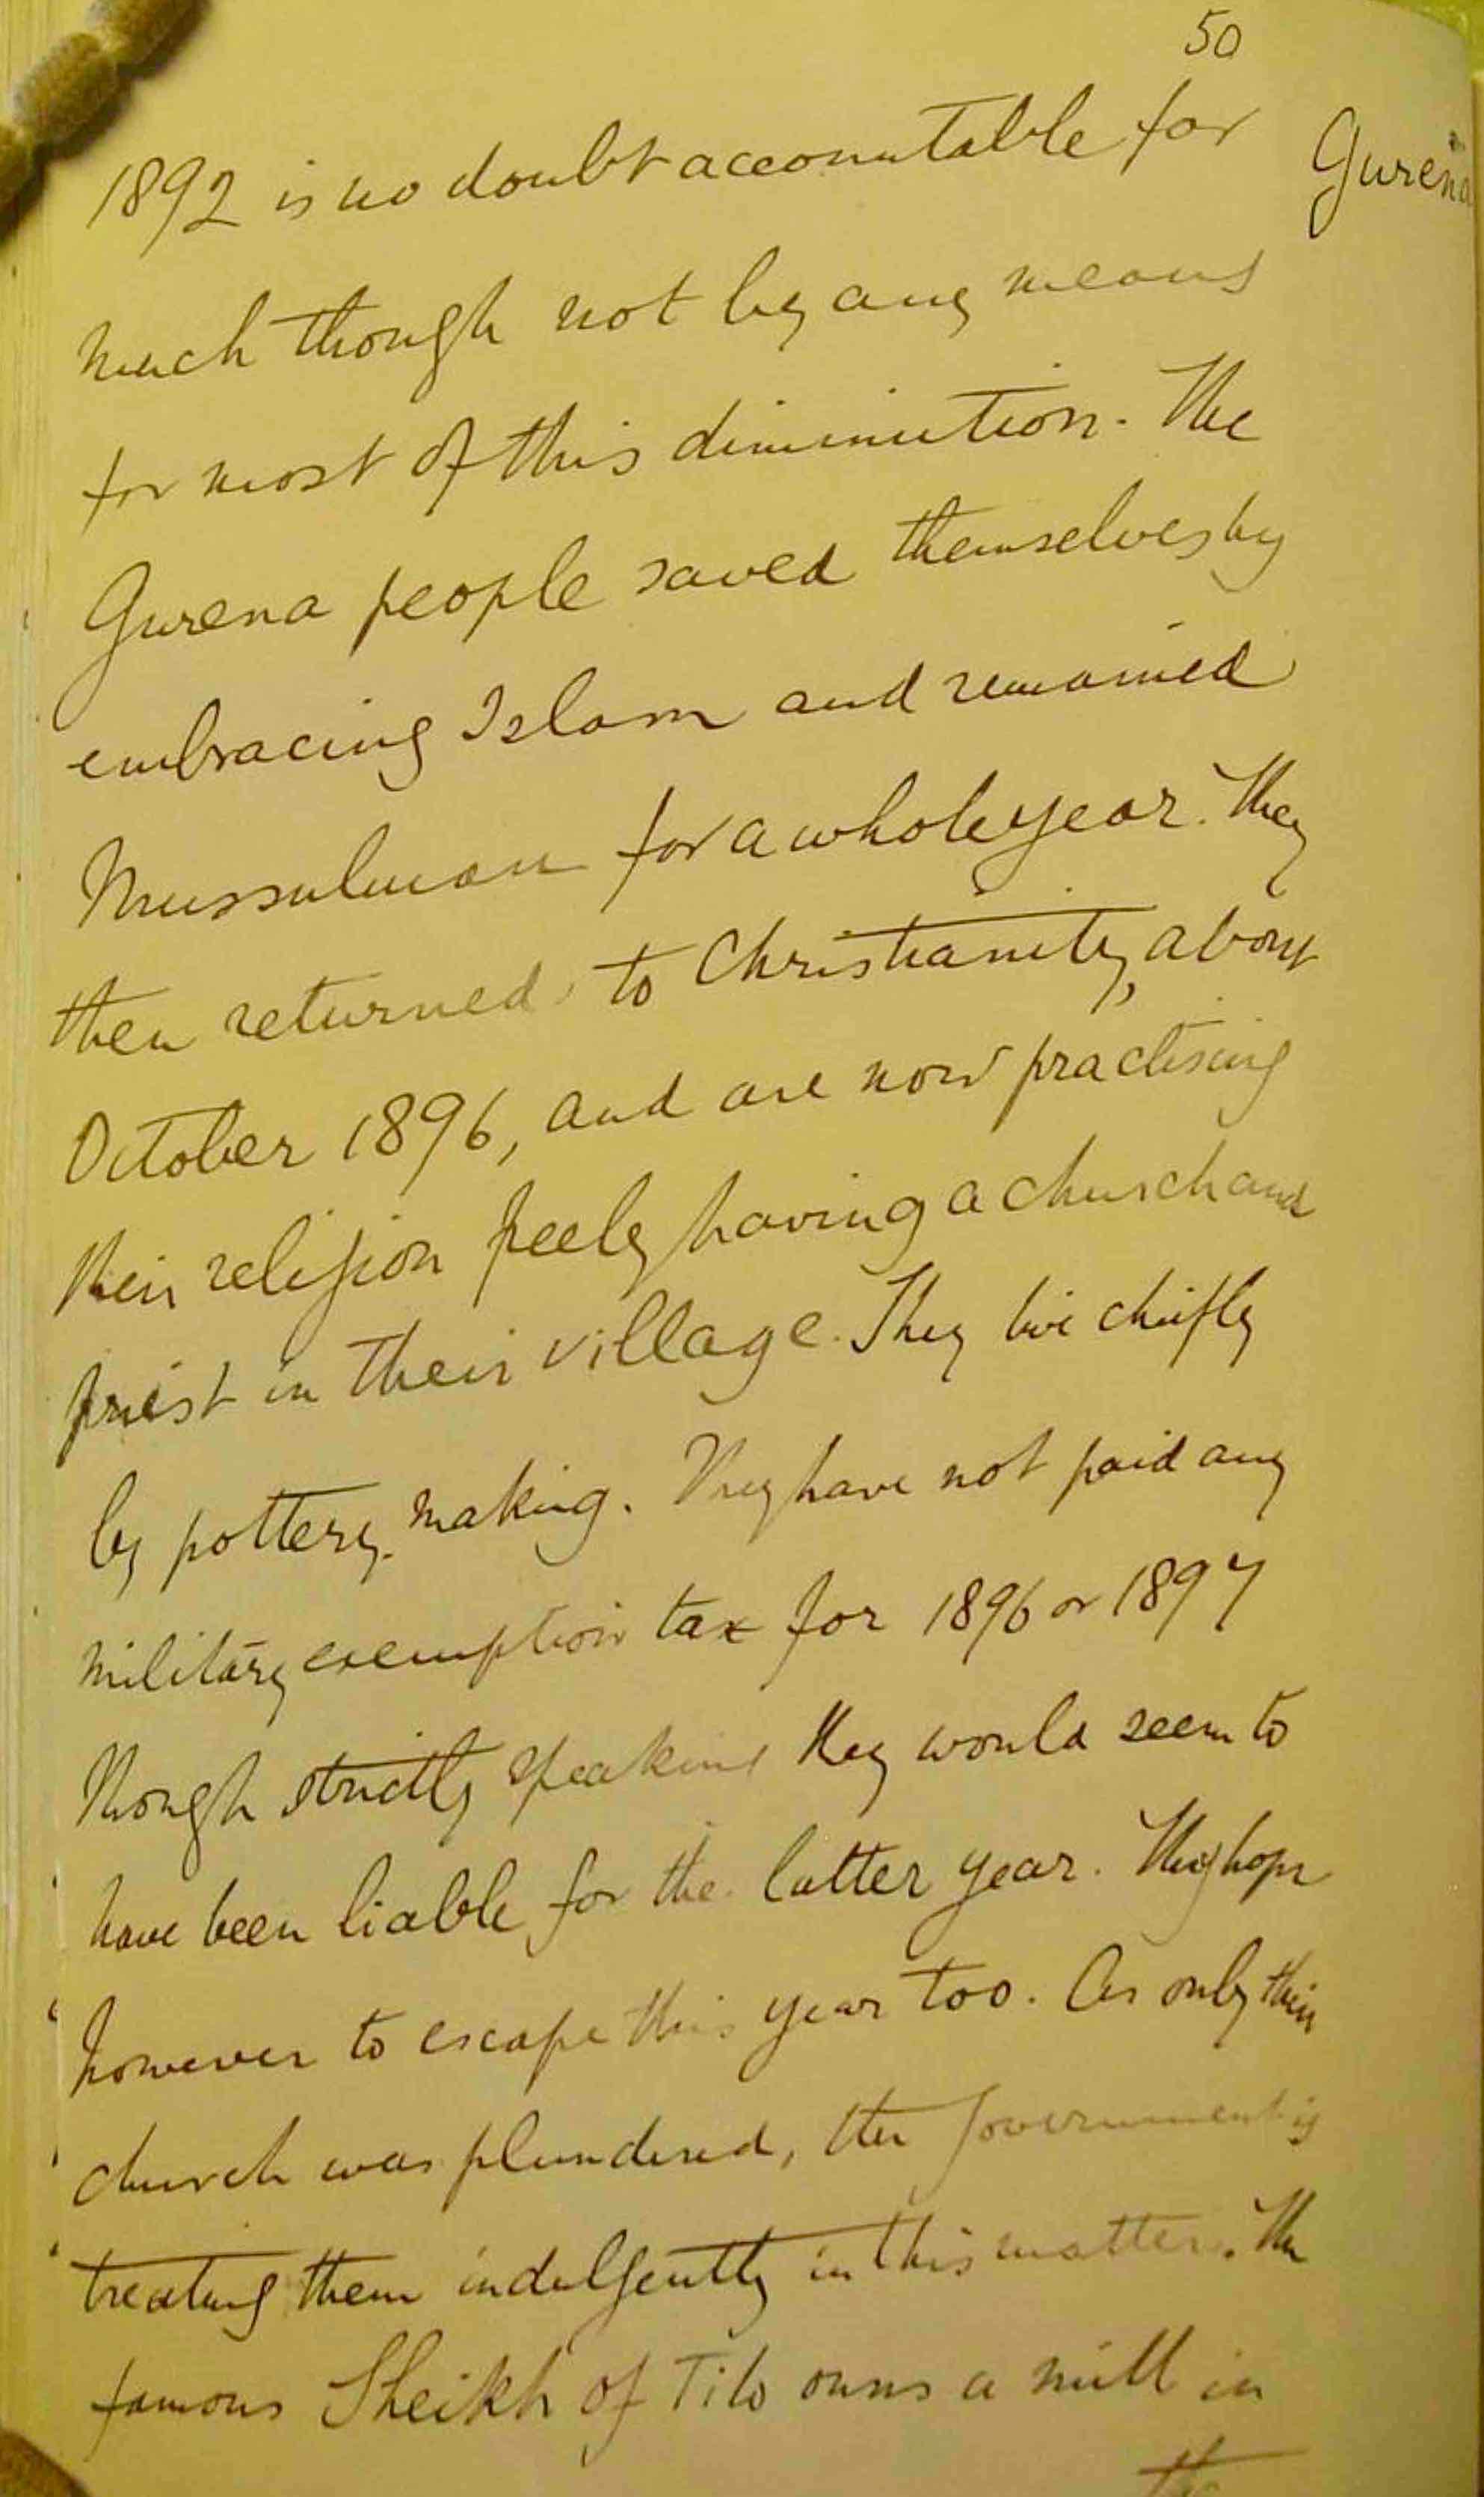 50
Gurena
1892 is no doubt accountable for
much though not by any means
for most of this diminution. The
Gurena people saved themselves by
embracing Islam and remained
Mussulman for a whole year. They
then returned to Christianity, about
October 1896, and are now practising
their religion freely having a church and
priest in their village. They live chiefly
by pottery making. They have not paid any
military exemption tax for 1896 or 1897
though strictly speaking they would seem to
have been liable for the latter year. They hope
however to escape this year too. As only their
church was plundered, the Government is
treating them indulgently in this matter. The
famous Sheikh of Tilo owns a mill in
the